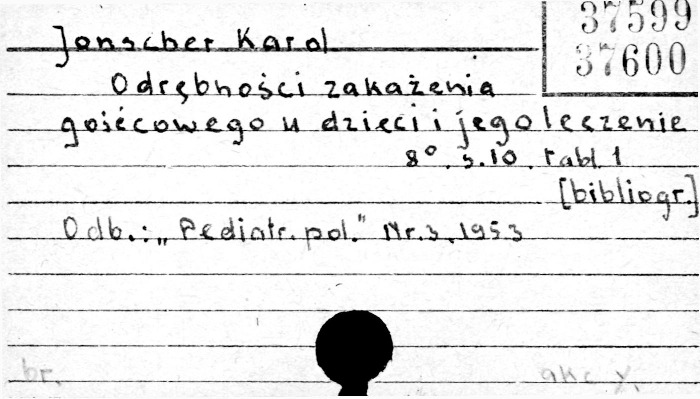 37599
37600
Jonscher Karol
Odrębności zakażenia
gośćcowego u dzieci i jego leczenie
8°. s. 10. tabl. 1
[bibliogr.]
Odb.: „Pediatr. pol." Nr. 3. 1953
br.
akc y.